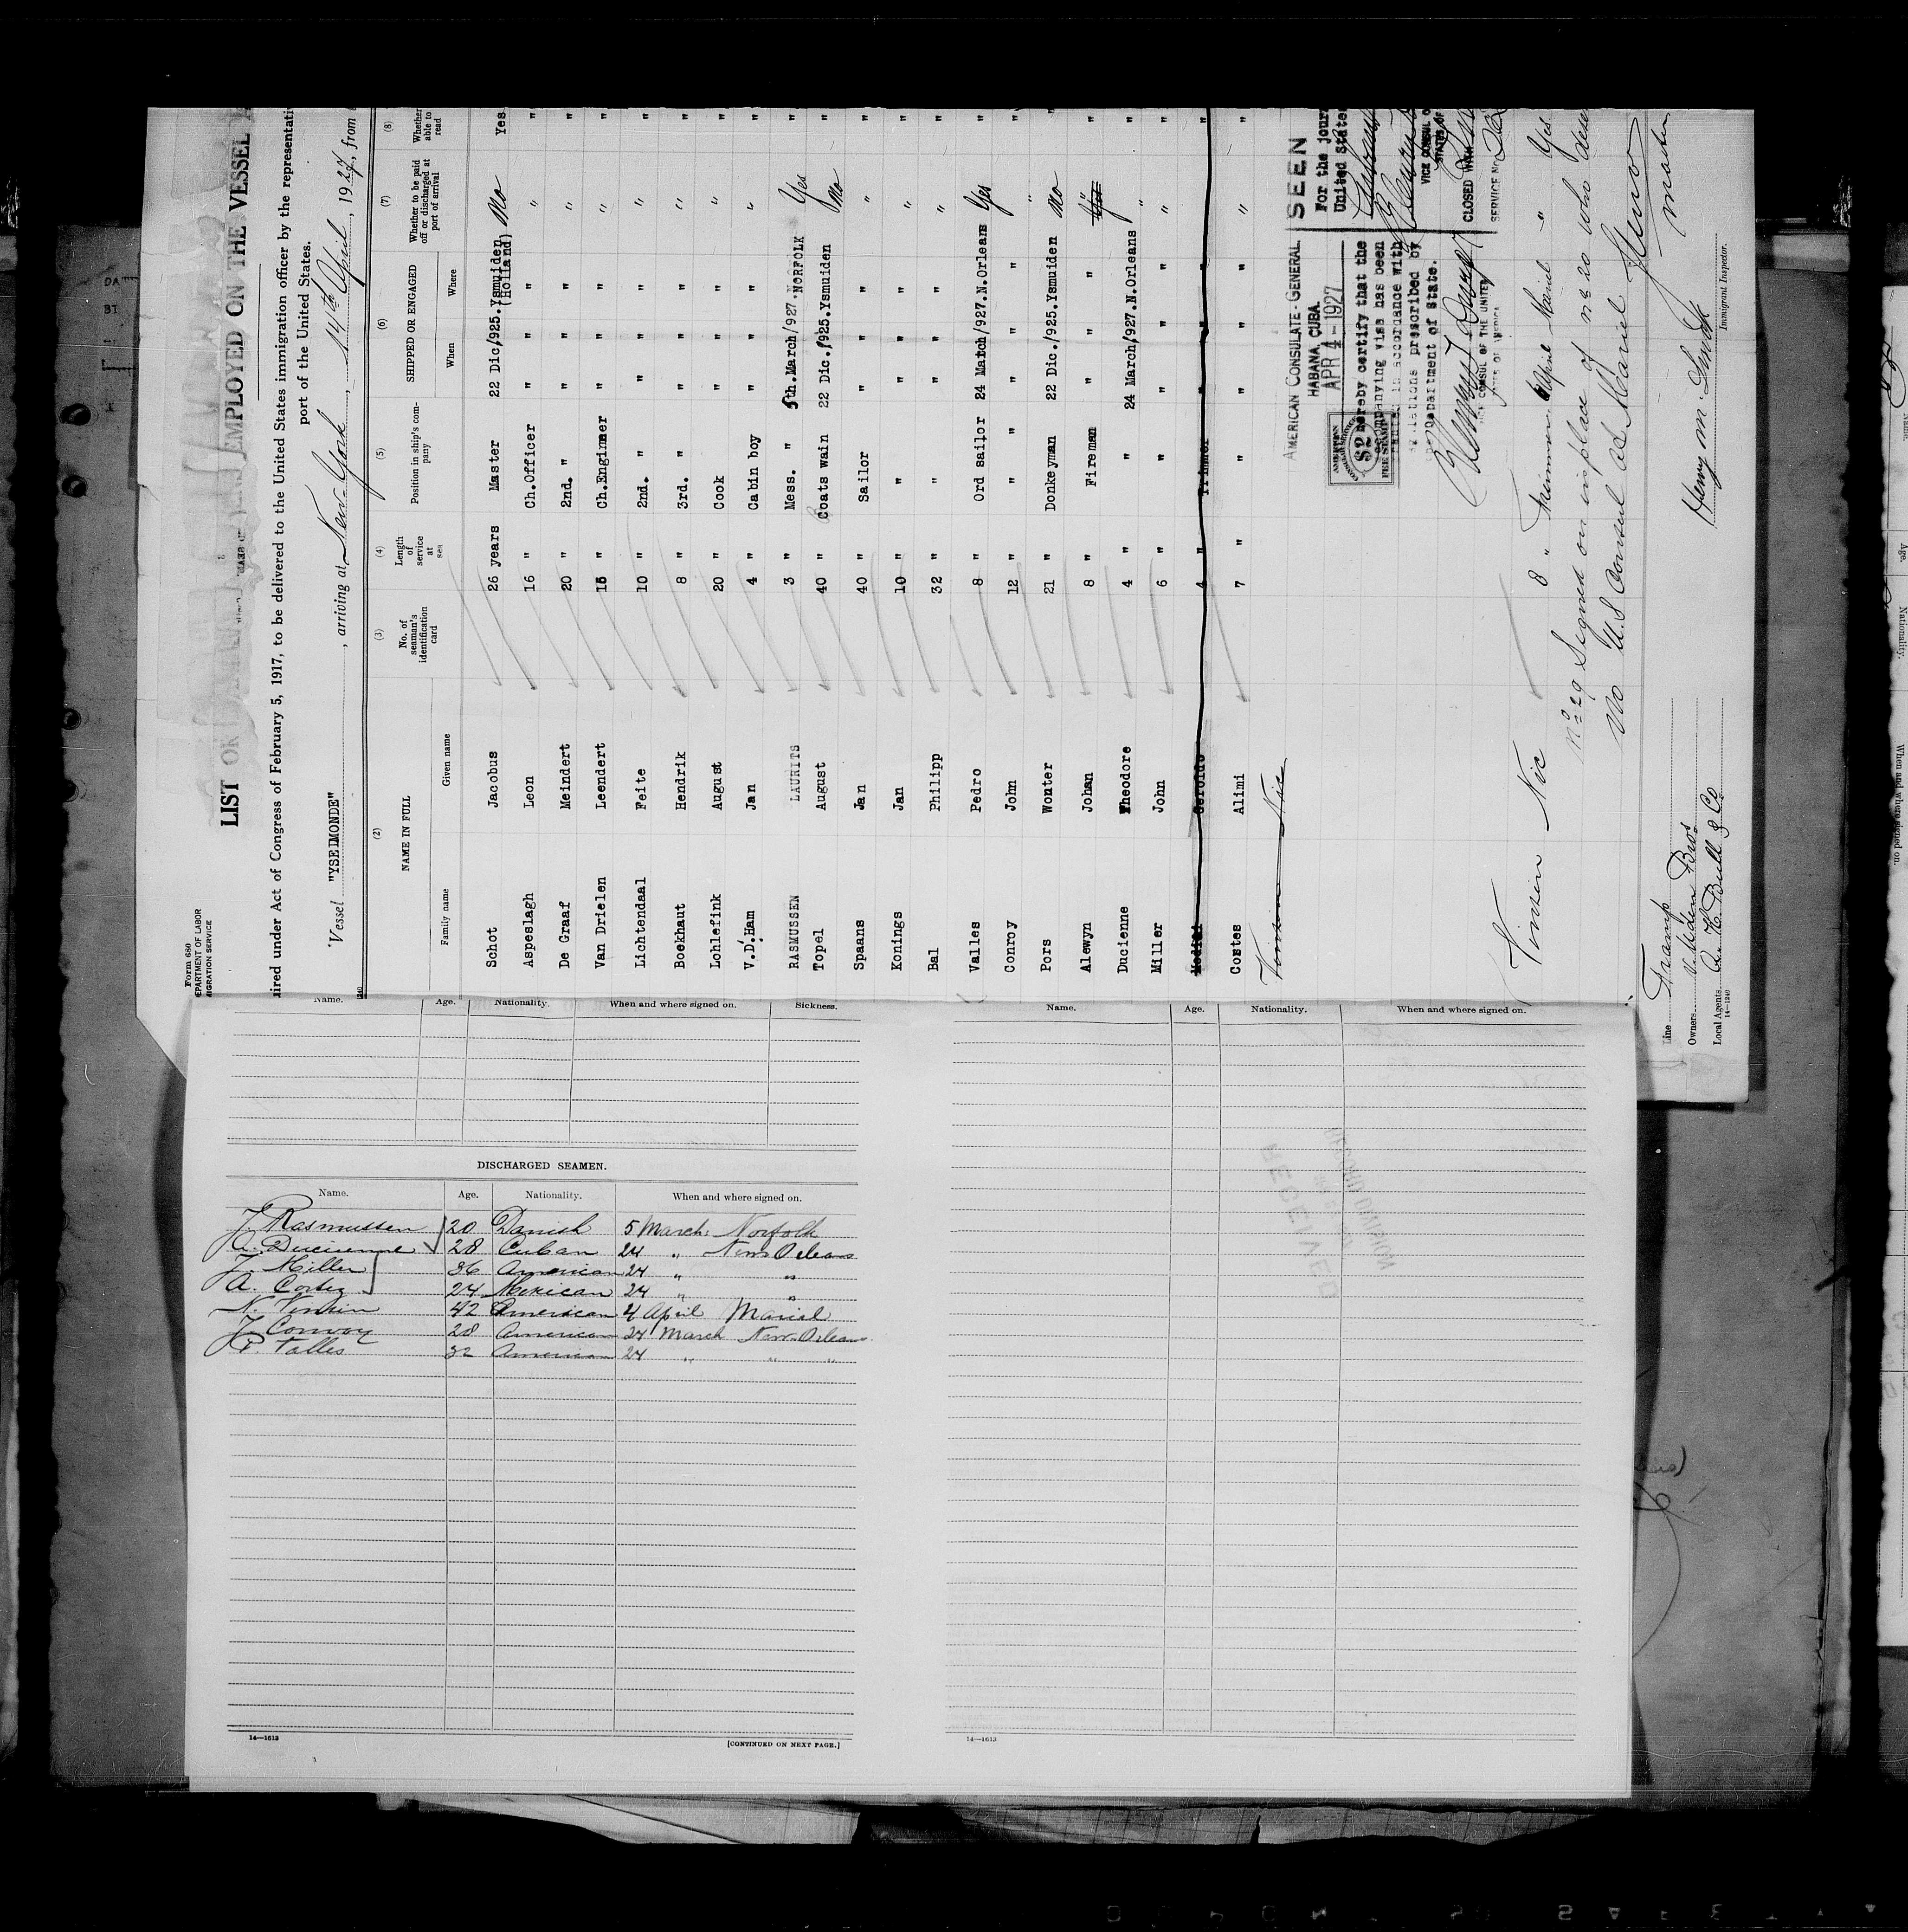 Form 680
DEPARTMENT OF LABOR
MIGRATION SERVICE
LIST OR EMPLOYED ON THE VESSEL
uired under Act of Congress of February 5, 1917, to be delivered to the United States immigration officer by the representati
port of the United States.
Vessel "YSELMONDE", arriving at New York, 14th April, 1927, from
(2) (3) (4) (5) (6) (7) (8)
NAME IN FULL
Family name Given name
No. of seaman's identification card
Length of service at sea
Position in ship's company
SHIPPED OR ENGAGED
When Where
Whether to be paid off or discharged at port of arrival
Whether able to read
Schot Jacobus 26 years Master 22 Dic/925. Ysmuiden (Holland) No Yes
Aspeslagh Leon 16 " Ch.Officer " " " " "
De Graaf Meindert 20 " 2nd. " " " " " "
Van Drielen Leendert 15 " Ch.Engineer " " " " "
Lichtendaal Feite 10 " 2nd. " " " " " "
Boekhaut Hendrik 8 " 3rd. " " " " " "
Lohlefink August 20 " Cook " " " " "
V.D.Ham Jan 4 " Cabin boy " " " " "
RASMUSSEN LAURITS 3 " Mess. " 5th.March/927. NORFOLK Yes "
Topel August 40 " Coats wain 22 Dic./925. Ysmuiden No "
Spaans Jan 40 " Sailor " " " " "
Konings Jan 10 " " " " " " "
Bal Philipp 32 " " " " " " "
Valles Pedro 8 " Ord sailor 24 March/927. N.Orleans Yes "
Conroy John 12 " " " " " " "
Pors Wouter 21 " Donkeyman 22 Dic./925. Ysmuiden No "
Alewyn Johan 8 " Fireman " " " "
Ducienne Theodore 4 " " 24 March/927. N.Orleans " "
Miller John 6 " " " " " " "
4 " Trimmer " " " "
Costes Alimi 7 " " " " " " "
Vinsin Nic
AMERICAN CONSULATE-GENERAL
HABANA, CUBA.
APR 4 - 1927
SEEN
For the jour
United State
AMERICAN
$2
FEE STAMP
hereby certify that the
accompanying visa has been
in accordance with
regulations prescribed by
Department of State.
VICE CONSUL OF THE UNITED
STATES OF AMERICA
VICE CONSUL O
STATES OF
CLOSED WITH
SERVICE No.
Vinsin Nic 8 " Trimmer 4 April Mariel " Yes
No 29 Signed on in place of no 20 who
No U.S. Consul at Mariel
master
Henry M. Smith
Immigrant Inspector.
Line Tramp
Owners V. Uden Bros
Local Agents A. H. Bull & Co
14—1240
Name. Age. Nationality. When and where signed on. Sickness.
Name. Age. Nationality. When and where signed on.
DISCHARGED SEAMEN.
Name. Age. Nationality. When and where signed on.
J. Rasmussen 20 Danish 5 March: Norfolk
A. Ducienne 28 Cuban 24 " New Orleans
J. Miller 36 American 24 " "
A. Cortez 24 Mexican 24 " "
N. Vinsin 42 American 4 April Mariel
J. Conroy 28 American 24 March New-Orleans
P. Valles 32 American 24 " " "
14—1613
[CONTINUED ON NEXT PAGE.]
14—1613
RECEIVED
RECORD DIVISION